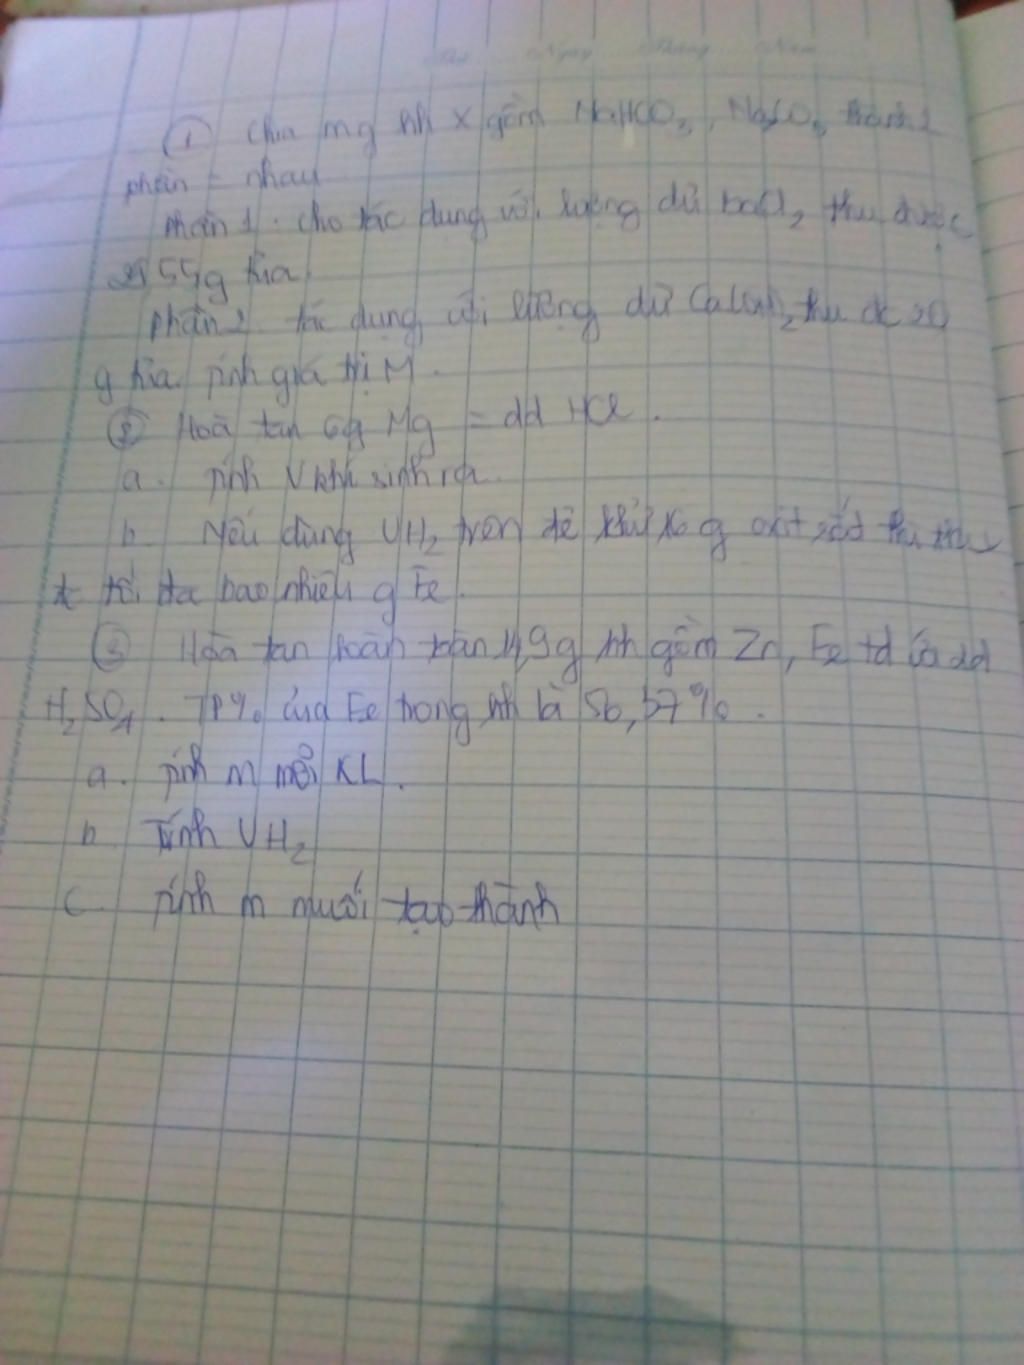 Thứ Ngày Tháng Năm
① Chia mg hh X gồm NaHCO3, Na2CO3 thành 2
phần = nhau
Phần 1. cho tác dụng với lượng dư BaCl2 thu được
55g tủa.
phần 2 tác dụng với lượng dư Ca(OH)2 thu đc 20
g tủa. Tính giá trị M.
② Hoà tan 6g Mg = dd HCl.
a. Tính V khí sinh ra.
b. Nếu dùng VH2 trên để khử g oxit sắt thì thu
đc tối đa bao nhiêu g Fe.
③ Hòa tan hoàn toàn 14,9g hh gồm Zn, Fe td dd
H2SO4. TP% của Fe trong hh là 56,37%.
a. Tính m mỗi KL.
b Tính VH2
c. Tính m muối tạo thành